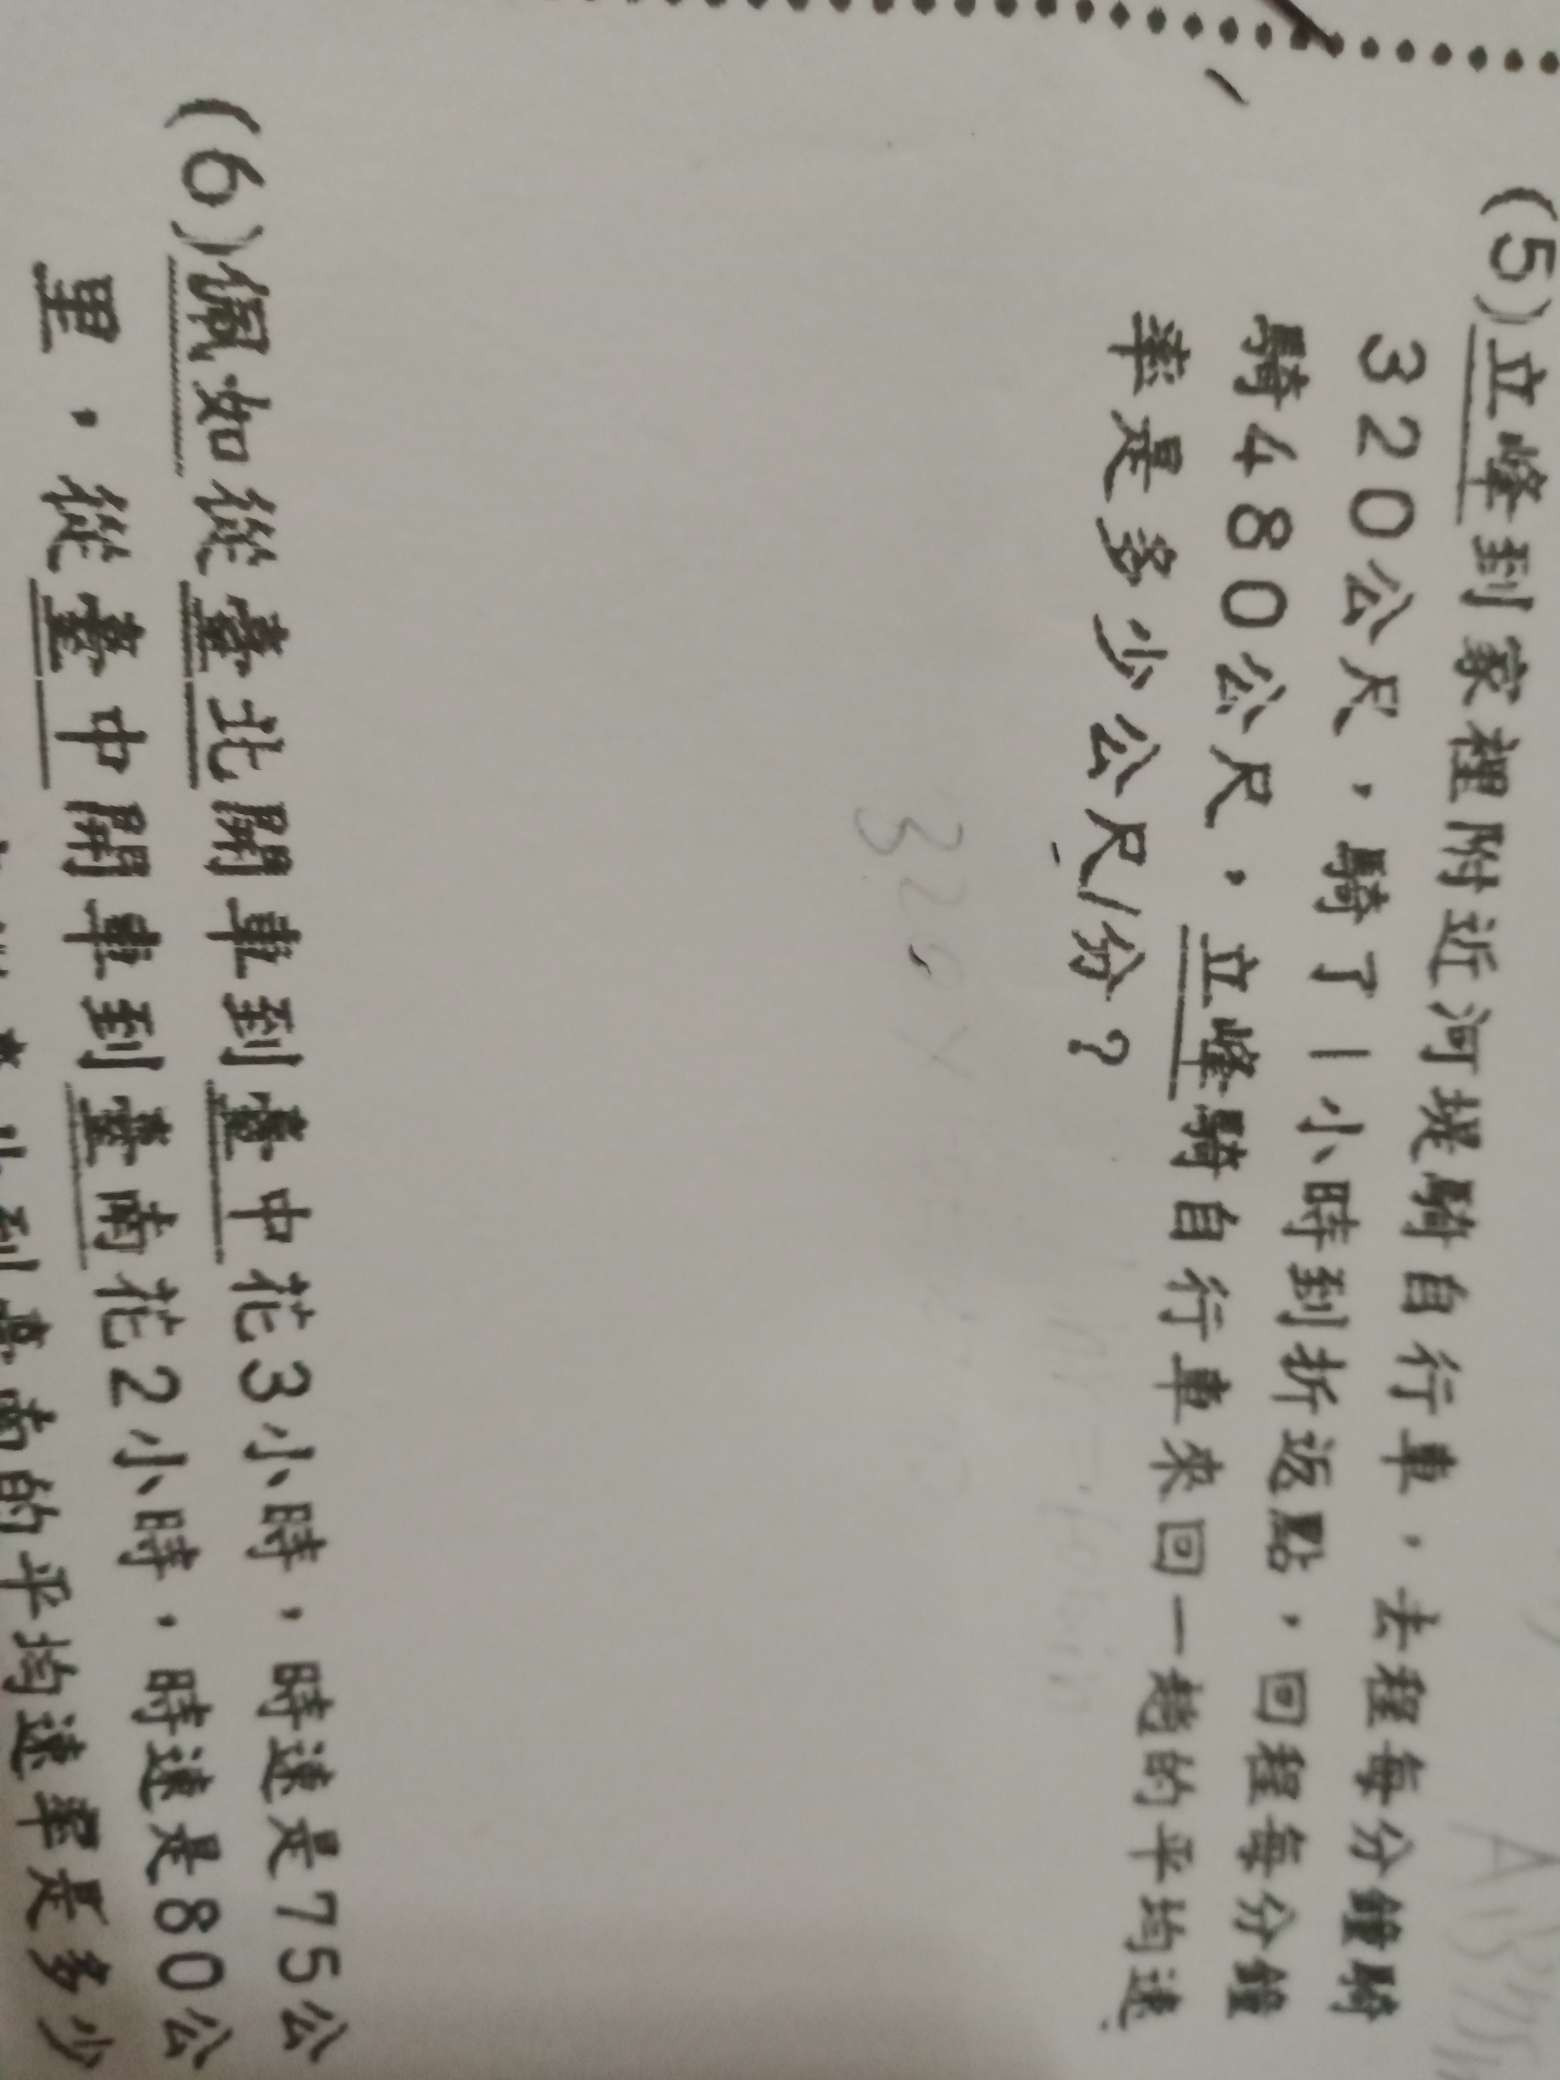 (5)立峰到家裡附近河堤騎自行車，去程每分鐘騎
320公尺，騎了1小時到折返點，回程每分鐘
騎480公尺，立峰騎自行車來回一趟的平均速
率是多少公尺/分？
320×
(6)佩如從臺北開車到臺中花3小時，時速是75公
里，從臺中開車到臺南花2小時，時速是80公
到臺南的平均速率是多少